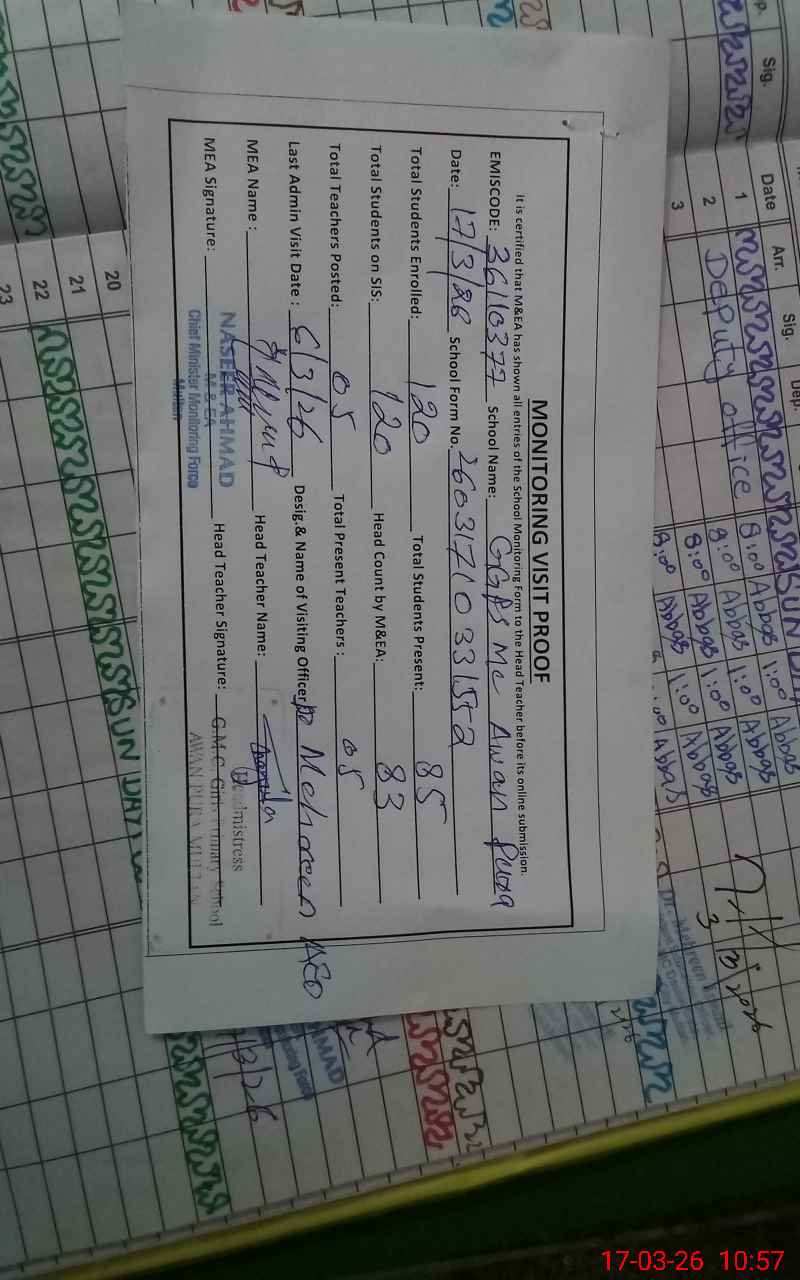 MONITORING VISIT PROOF
It is certified that M&EA has shown all entries of the School Monitoring Form to the Head Teacher before its online submission.
EMISCODE: 36110377 School Name: GGPS MC Awan Pura
Date: 17/3/26 School Form No. 26031710331552
Total Students Enrolled: 120 Total Students Present: 85
Total Students on SIS: 120 Head Count by M&EA: 83
Total Teachers Posted: 05 Total Present Teachers: 05
Last Admin Visit Date: 6/3/26 Desig.& Name of Visiting Officer: Mehreen AEO
MEA Name: Head Teacher Name:
MEA Signature: Head Teacher Signature:
NASEER AHMAD
M & EA
Chief Minister Monitoring Force
Multan
Headmistress
G.M.C. Girls Primary School
AWAN PURA MULTAN
Sig.
Date Arr. Sig. Dep.
1 SUN DAY
2 Deputy office 8:00 Abbas 1:00 Abbas
3 8:00 Abbas 1:00 Abbas
8:00 Abbas 1:00 Abbas
8:00 Abbas 1:00 Abbas
20
21
22 SUN DAY
23
Dr. Mehreen
3
2026
AHMAD
Monitoring Force
/3/26
17-03-26 10:57